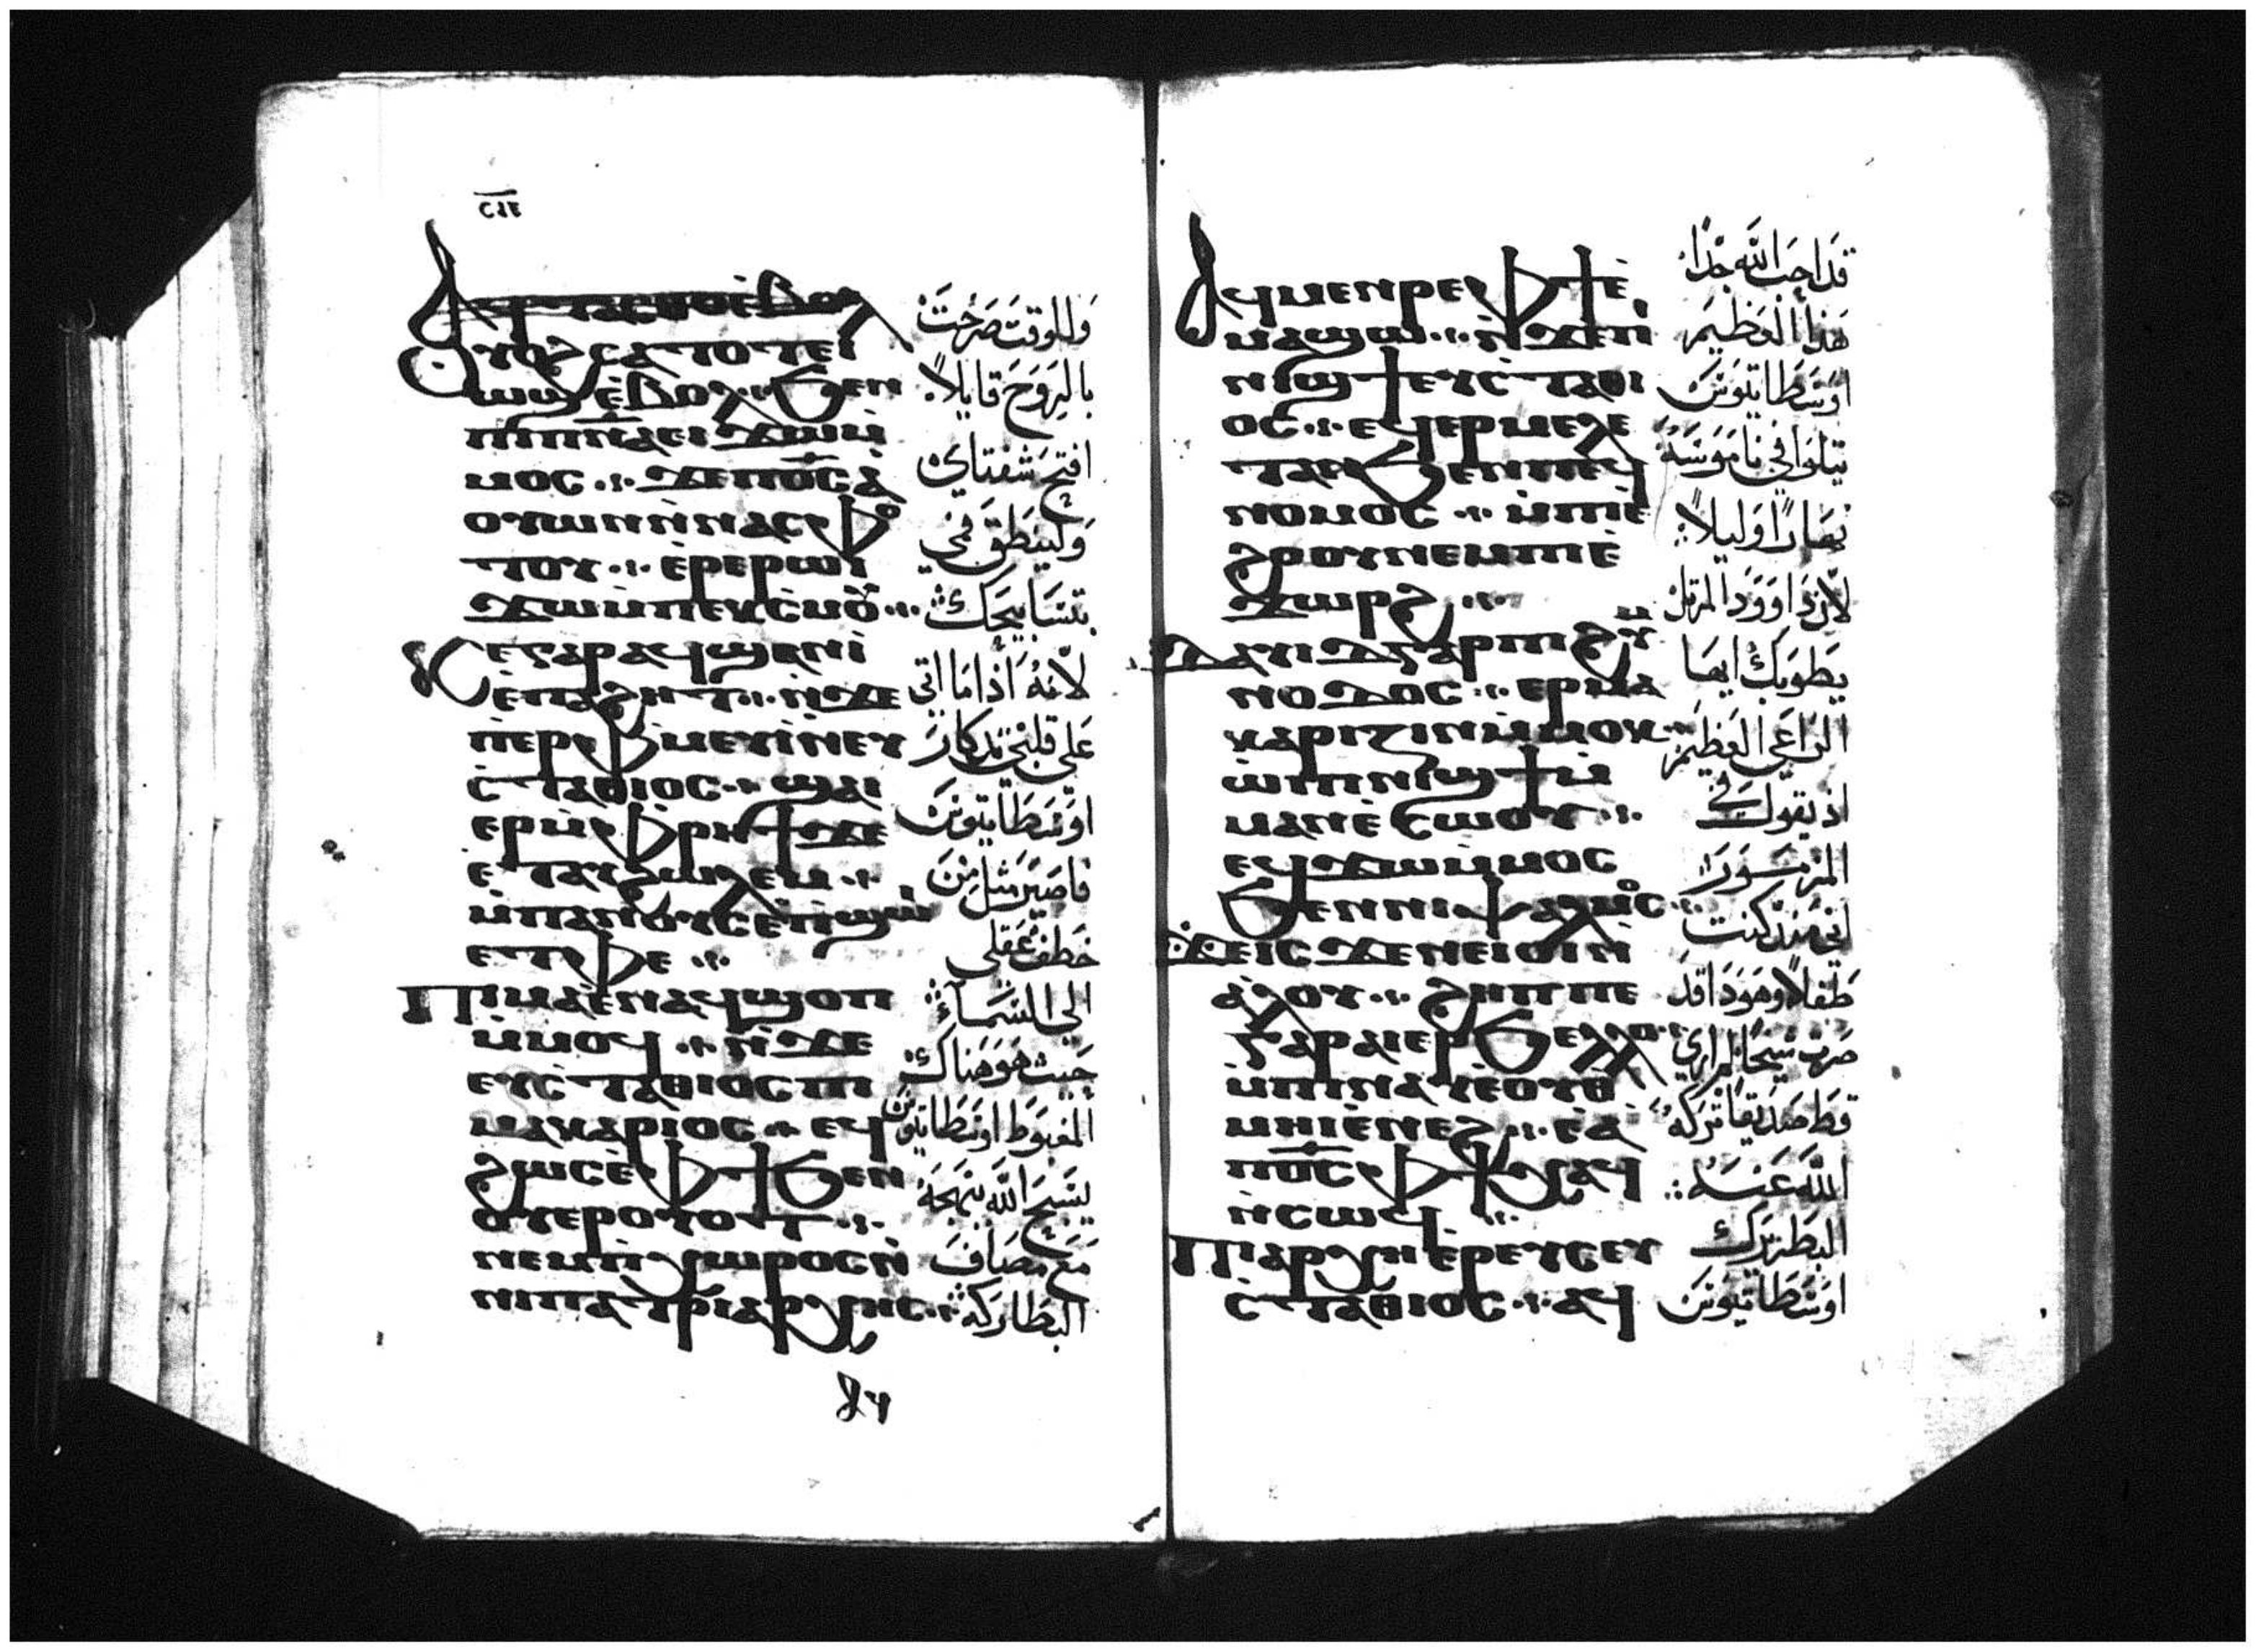 ⲥⲓⲉ
ⲟⲩⲟϩ ⲥⲁⲧⲟⲧ ⲉⲓ
ⲱϣ ⲉ̀ⲃⲟⲗ ϧⲉⲛ
ⲡⲓⲡ̅ⲛ̅ⲁ̅ ⲉⲓϫⲱ ⲙ̀
ⲙⲟⲥ ⲝⲉ ⲡϭⲥ ⲁ̀
ⲟⲩⲱⲛ ⲛ̀ⲛⲁⲥⲫⲟ
ⲧⲟⲩ ⲉ̀ⲣⲉ ⲣⲱⲓ
ϫⲱ ⲙ̀ⲡⲉⲕⲥⲙⲟⲩ
ⲕⲉ ⲅⲁⲣ ⲁϥϣⲁⲛⲓ̀
ⲉ̀ⲡⲁϩⲏⲧ ⲛ̀ϫⲉ
ⲡ̀ⲉⲣⲫⲙⲉⲩⲓ̀ ⲛ̀ⲉⲩ
ⲥ̀ⲧⲁⲑⲓⲟⲥ ϣⲁⲓ
ⲉⲣ ⲙ̀ⲫⲣⲏϯ ϫⲉ
ⲉⲧⲁⲩϩⲱⲗⲉⲙ
ⲙ̀ⲡⲁⲛⲟⲩⲥ ⲉ̀ⲡ̀ϣⲱⲓ
ⲉⲧⲫⲉ
ⲡⲓⲙⲁ ⲉ̀ⲛⲁϥϣⲟⲡ
ⲙ̀ⲙⲟϥ ⲛ̀ϫⲉ
ⲉⲩⲥⲧⲁⲑⲓⲟⲥ ⲡⲓ
ⲙⲁⲕⲁⲣⲓⲟⲥ ⲉϥ
ϩⲱⲥ ⲉ̀ⲫϯ ϧⲉⲛ
ⲟⲩⲉⲣⲟⲩⲟⲧ
ⲛⲉⲙ ⲡ̀ⲭⲱⲣⲟⲥ ⲛ̀
ⲛⲓⲡⲁⲧⲣⲓⲁⲣⲭⲏⲥ
وللوقت صرخت
بالروح قايلاً
افتح شفتاي
ولينطق فمي
بتسابيحك
لانه اذا ما اتي
علي قلبي تدكار
اوسطاتيوس
فاصير مثل من
خطف عقلي
الي السماء
حيث هو هناك
المغبوط اوسطاتيوس
يسبح الله ببهجة
مع مصاف
البطاركة
ⲁϥⲙⲉⲛⲣⲉ ⲫϯ ⲉ̀
ⲙⲁϣⲱ ⲛ̀ϫⲉ ⲡⲓ
ⲛⲓϣϯ ⲉⲩⲥⲧⲁⲑⲓ
ⲟⲥ ⲉϥⲉⲣⲙⲉⲗⲉ
ⲧⲁⲛ ϧⲉⲛ ⲡⲉϥ
ⲛⲟⲙⲟⲥ ⲙ̀ⲡⲓⲉ̀
ϩⲟⲟⲩ ⲛⲉⲙ ⲡⲓⲉ̀
ϫⲱⲣϩ
ⲇⲁⲩⲓⲇ ⲅⲁⲣ ⲡⲓϩⲩⲙ
ⲛⲟⲇⲟⲥ ⲉⲣⲙⲁ
ⲕⲁⲣⲓⲍⲓⲛ ⲙ̀ⲙⲟⲕ
ⲱ̀ ⲡⲓⲛⲓϣϯ ⲙ̀
ⲙⲁⲛⲉ̀ⲥⲱⲟⲩ
ⲉϥϫⲱ ⲙ̀ⲙⲟⲥ
ϧⲉⲛ ⲛⲓⲯⲁⲗⲙⲟⲥ
ϫⲉ ⲓⲥϫⲉⲛ ⲉⲓⲟⲓ ⲛ̀
ⲁ̀ⲗⲟⲩ ϩⲏⲡⲡⲉ
ⲅⲁⲣ ⲁⲓⲉⲣϧⲉⲗⲗⲟ
ⲙ̀ⲡⲓⲛⲁⲩ ⲉ̀ⲟⲩⲑ
ⲙⲏⲓ ⲉ̀ⲛⲉϩ ⲉ̀ⲁ̀
ⲡϭⲥ ⲫϯ ⲭⲁϥ
ⲛ̀ⲥⲱϥ
ⲡⲓⲁⲣⲭⲏⲉ̀ⲣⲉⲩⲥ ⲉⲩ
ⲥ̀ⲧⲁⲑⲓⲟⲥ ⲁϥ
قد احب الله جدا
هذا العظيم
اوسطاتيوس
يتلوا في ناموسه
نهاراً وليلاً
لان داوود المرتل
يطوبك ايها
الراعي العظيم
اذ يقول في
المزمور
اني منذ كنت
طفلاً وهوذا قد
صرت شيخا لم اري
قط صديقا تركه
الله عنه
البطريرك
اوسطاتيوس